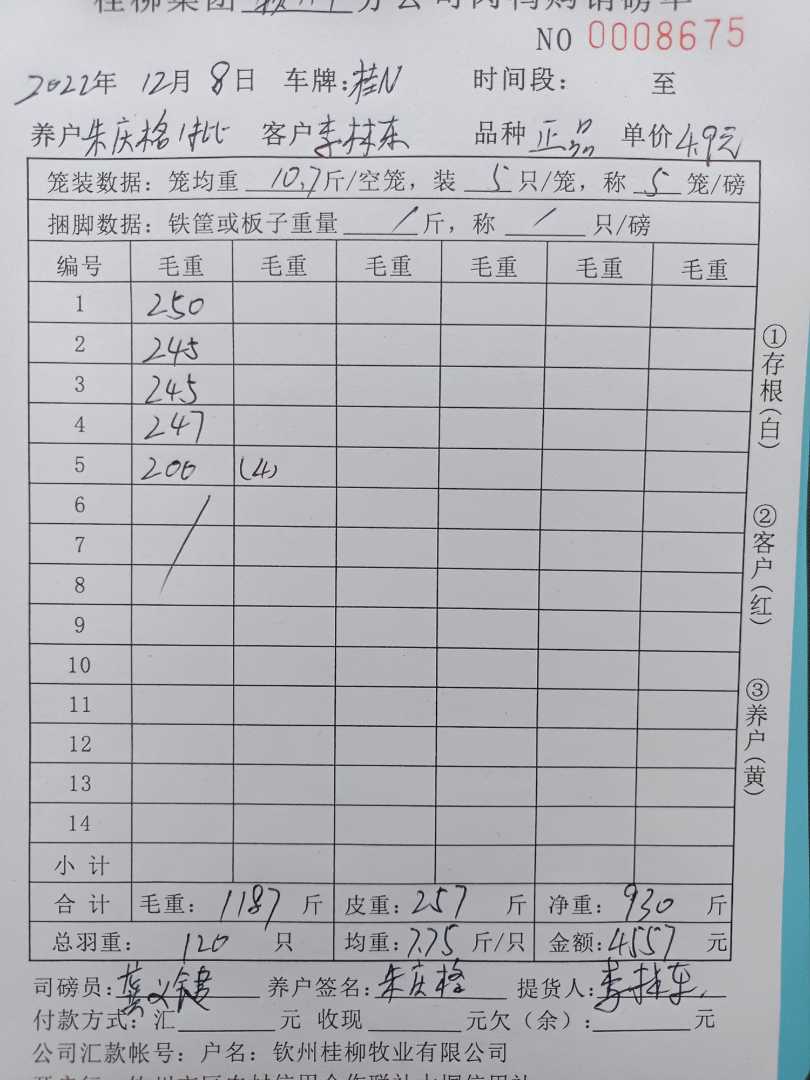 桂柳集团 钦州 分公司肉鸭购销磅单
NO 0008675
2022年 12月 8日 车牌:桂N 时间段: 至
养户朱庆格1批 客户李林东 品种 正品 单价4.9元
笼装数据: 笼均重 10.7斤/空笼, 装 5 只/笼, 称 5 笼/磅
捆脚数据: 铁筐或板子重量 / 斤, 称 / 只/磅
编号 毛重 毛重 毛重 毛重 毛重 毛重
1 250
2 245
3 245
4 247
5 200 (4)
6
7
8
9
10
11
12
13
14
小 计
合 计 毛重: 1187 斤 皮重: 257 斤 净重: 930 斤
总羽重: 120 只 均重: 7.75 斤/只 金额: 4557 元
司磅员: 养户签名: 朱庆格 提货人: 李林东
付款方式: 汇 元 收现 元欠(余): 元
公司汇款帐号: 户名: 钦州桂柳牧业有限公司
①存根(白)
②客户(红)
③养户(黄)